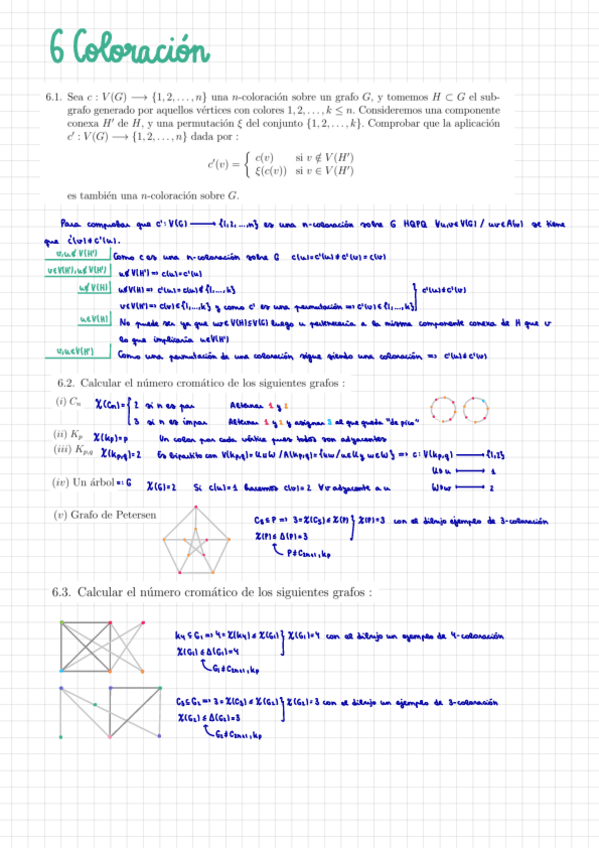 6 Coloración
6.1. Sea c : V(G) ⟶ {1, 2, . . . , n} una n-coloración sobre un grafo G, y tomemos H ⊂ G el sub-
grafo generado por aquellos vértices con colores 1, 2, . . . , k ≤ n. Consideremos una componente
conexa H' de H, y una permutación ξ del conjunto {1, 2, . . . , k}. Comprobar que la aplicación
c' : V(G) ⟶ {1, 2, . . . , n} dada por :
c'(v) = { c(v) si v ∉ V(H')
ξ(c(v)) si v ∈ V(H')
es también una n-coloración sobre G.
Para comprobar que c': V(G) ⟶ {1,2,...,n} es una n-coloración sobre G HQPQ ∀u,v∈V(G) / uv∈A(G) se tiene
que c'(v)≠c'(u).
v,u∉V(H') Como c es una n-coloración sobre G c(u)=c'(u)≠c'(v)=c(v)
v∈V(H'),u∉V(H') u∉V(H') => c(u)=c'(u)
u∉V(H) u∉V(H) => c'(u)=c(u)∉{1,...,k}
v∈V(H') => c(v)∈{1,...,k} y como c' es una permutación => c'(v)∈{1,...,k} } c'(u)≠c'(v)
u∈V(H) No puede ser ya que uv∈V(H)≤V(G) luego u pertenecería a la misma componente conexa de H que v
lo que implicaría u∈V(H')
v,u∈V(H') Como una permutación de una coloración sigue siendo una coloración => c'(u)≠c'(v)
6.2. Calcular el número cromático de los siguientes grafos :
(i) Cₙ χ(Cn)={ 2 si n es par Alternar 1 y 2
3 si n es impar Alternar 1 y 2 y asignar 3 al que queda "de pico"
(ii) Kₚ χ(Kp)=p Un color por cada vértice pues todos son adyacentes
(iii) Kₚ,q χ(Kp,q)=2 Es bipartito con V(Kp,q)=U∪W / A(Kp,q)={uw/u∈U y w∈W} => c: V(Kp,q) ⟶ {1,2}
U∋u ⟼ 1
(iv) Un árbol =: G χ(G)=2 Si c(u)=1 hacemos c(v)=2 ∀v adyacente a u W∋w ⟼ 2
(v) Grafo de Petersen C5≤P => 3=χ(C5)≤χ(P) } χ(P)=3 con el dibujo ejemplo de 3-coloración
χ(P)≤Δ(P)=3
P≠C2n+1,Kp
6.3. Calcular el número cromático de los siguientes grafos :
K4≤G1 => 4=χ(K4)≤χ(G1) } χ(G1)=4 con el dibujo un ejemplo de 4-coloración
χ(G1)≤Δ(G1)=4
G1≠C2n+1,Kp
C3≤G2 => 3=χ(C3)≤χ(G2) } χ(G2)=3 con el dibujo un ejemplo de 3-coloración
χ(G2)≤Δ(G2)=3
G2≠C2n+1,Kp